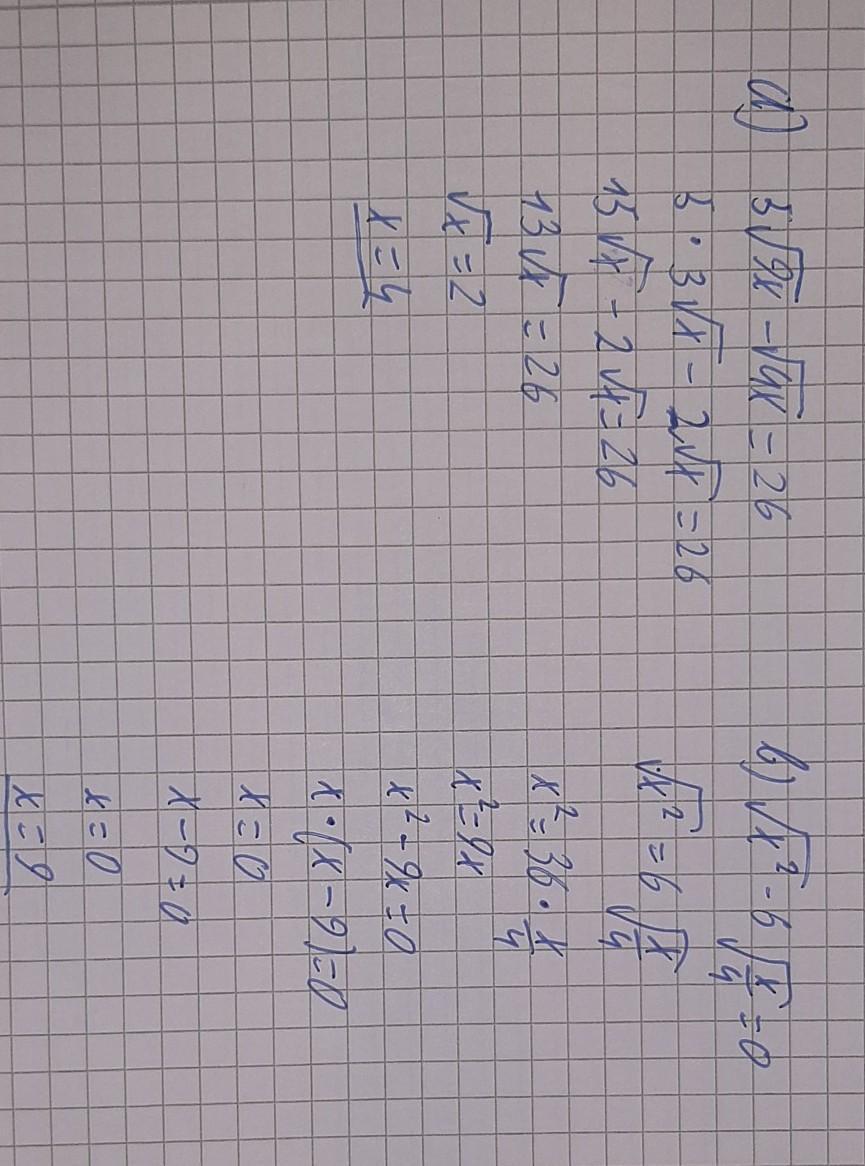 a) 5√9x - √4x = 26
5 · 3√x - 2√x = 26
15√x - 2√x = 26
13√x = 26
√x = 2
x = 4
b) √x² - 6√x/4 = 0
√x² = 6√x/4
x² = 36 · x/4
x² = 9x
x² - 9x = 0
x · (x - 9) = 0
x = 0
x - 9 = 0
x = 0
x = 9